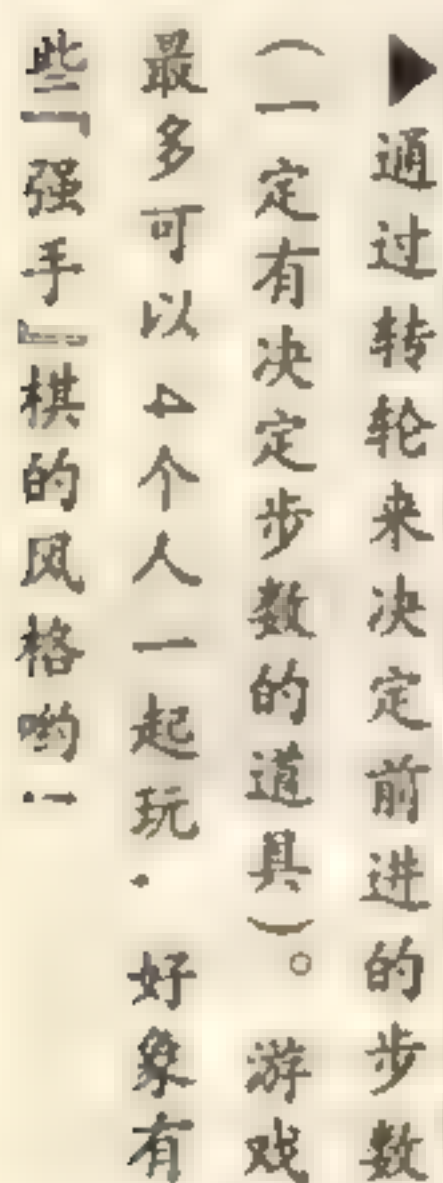 ▶通过转轮来决定前进的步数
(一定有决定步数的道具)。游戏
最多可以4个人一起玩.好象有
些『强手』棋的风格哟!